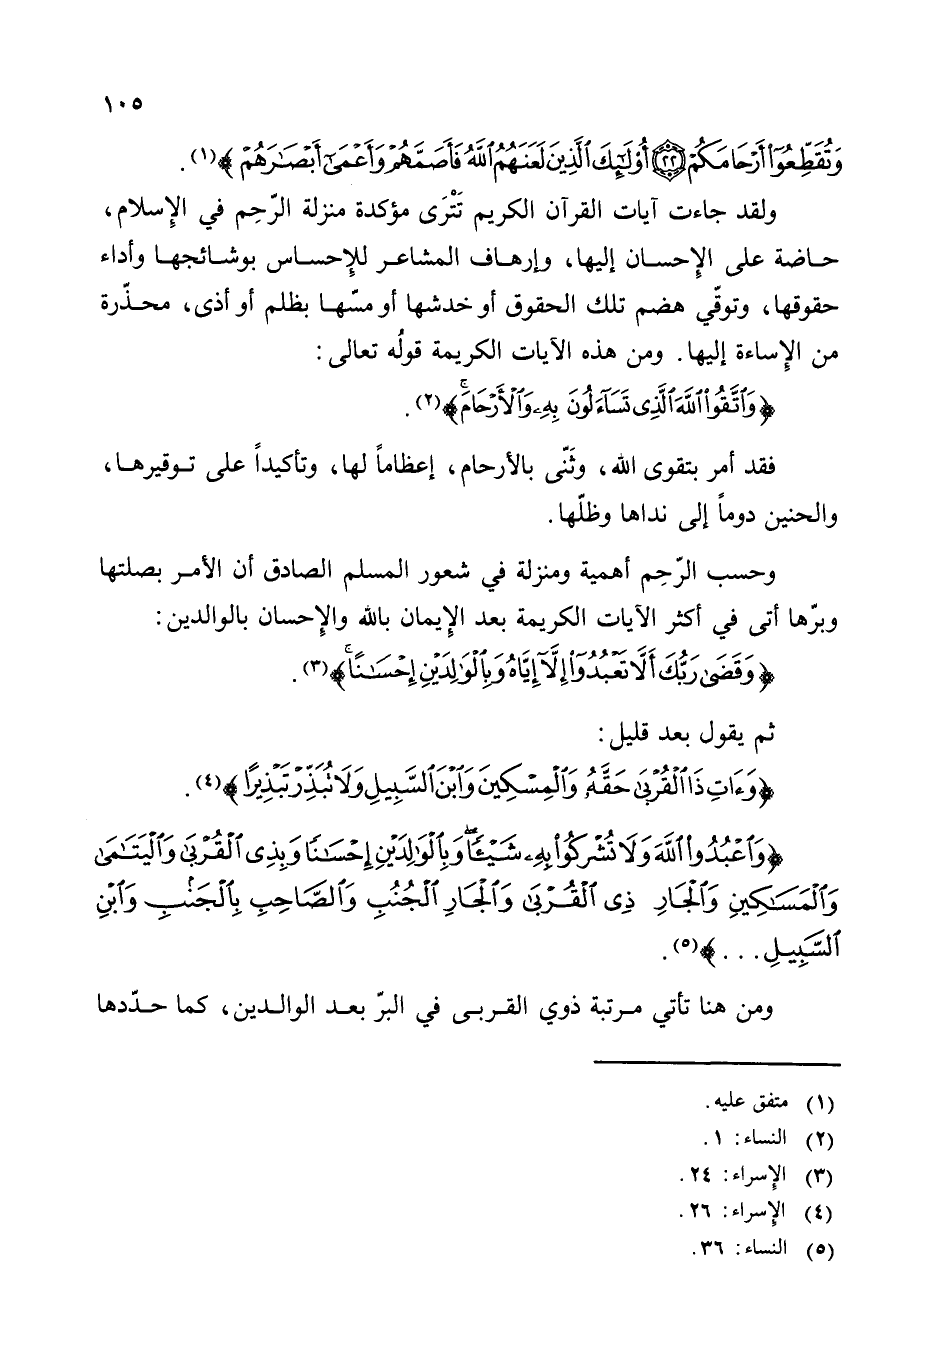 ١٠٥
وَتُقَطِّعُوٓا۟ أَرْحَامَكُمْ ۝٢٢ أُو۟لَٰٓئِكَ ٱلَّذِينَ لَعَنَهُمُ ٱللَّهُ فَأَصَمَّهُمْ وَأَعْمَىٰٓ أَبْصَٰرَهُمْ ﴾(١).
ولقد جاءت آيات القرآن الكريم تَتْرَى مؤكدة منزلة الرّحِم في الإِسلام،
حاضة على الإِحسان إليها، وإرهاف المشاعر للإِحساس بوشائجها وأداء
حقوقها، وتوقّي هضم تلك الحقوق أو خدشها أو مسّها بظلم أو أذى، محذّرة
من الإِساءة إليها. ومن هذه الآيات الكريمة قولُه تعالى:
﴿وَٱتَّقُوا۟ ٱللَّهَ ٱلَّذِى تَسَآءَلُونَ بِهِۦ وَٱلْأَرْحَامَۚ﴾(٢).
فقد أمر بتقوى الله، وثَنّى بالأرحام، إعظاماً لها، وتأكيداً على توقيرها،
والحنين دوماً إلى نداها وظلّها.
وحسب الرّحِم أهمية ومنزلة في شعور المسلم الصادق أن الأمر بصلتها
وبرّها أتى في أكثر الآيات الكريمة بعد الإِيمان بالله والإِحسان بالوالدين:
﴿وَقَضَىٰ رَبُّكَ أَلَّا تَعْبُدُوٓا۟ إِلَّآ إِيَّاهُ وَبِٱلْوَٰلِدَيْنِ إِحْسَٰنًاۚ﴾(٣).
ثم يقول بعد قليل:
﴿وَءَاتِ ذَا ٱلْقُرْبَىٰ حَقَّهُۥ وَٱلْمِسْكِينَ وَٱبْنَ ٱلسَّبِيلِ وَلَا تُبَذِّرْ تَبْذِيرًا ﴾(٤).
﴿وَٱعْبُدُوا۟ ٱللَّهَ وَلَا تُشْرِكُوا۟ بِهِۦ شَيْـًٔاۖ وَبِٱلْوَٰلِدَيْنِ إِحْسَٰنًا وَبِذِى ٱلْقُرْبَىٰ وَٱلْيَتَٰمَىٰ
وَٱلْمَسَٰكِينِ وَٱلْجَارِ ذِى ٱلْقُرْبَىٰ وَٱلْجَارِ ٱلْجُنُبِ وَٱلصَّاحِبِ بِٱلْجَنۢبِ وَٱبْنِ
ٱلسَّبِيلِ...﴾(٥).
ومن هنا تأتي مرتبة ذوي القربى في البرّ بعد الوالدين، كما حدّدها
(١) متفق عليه.
(٢) النساء: ١.
(٣) الإِسراء: ٢٤.
(٤) الإِسراء: ٢٦.
(٥) النساء: ٣٦.